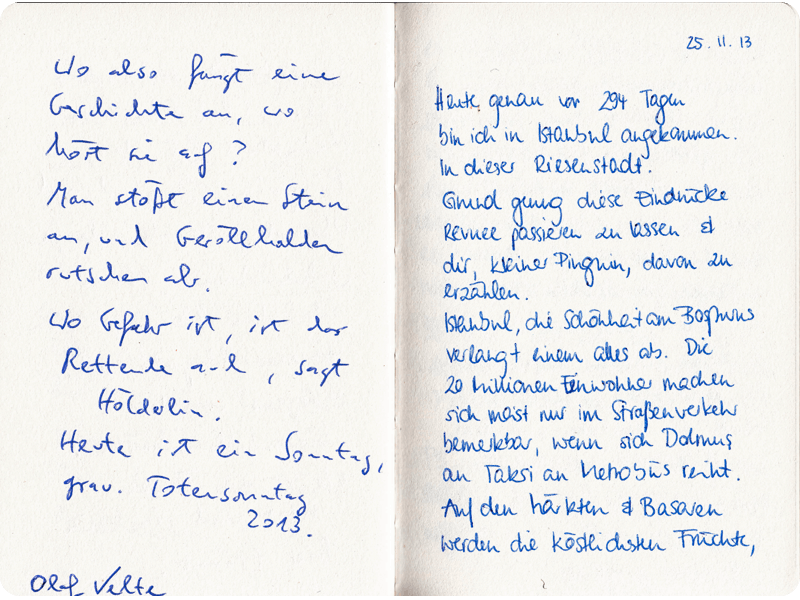 Wo also fängt eine
Geschichte an, wo
hört sie auf?
Man stößt einen Stein
an, und Geröllhalden
rutschen ab.
Wo Gefahr ist, ist das
Rettende auch, sagt
Hölderlin.
Heute ist ein Sonntag,
grau. Totensonntag
2013.
Olaf Velte
25.11.13
Heute, genau vor 294 Tagen
bin ich in Istanbul angekommen.
In dieser Riesenstadt.
Grund genug diese Eindrücke
Revuee passieren zu lassen &
dir, kleiner Pinguin, davon zu
erzählen.
Istanbul, die Schönheit am Bosphorus
verlangt einem alles ab. Die
20 Millionen Einwohner machen
sich meist nur im Straßenverkehr
bemerkbar, wenn sich Dolmuş
an Taksi an Metrobüs reiht.
Auf den Märkten & Basaren
werden die köstlichsten Früchte,